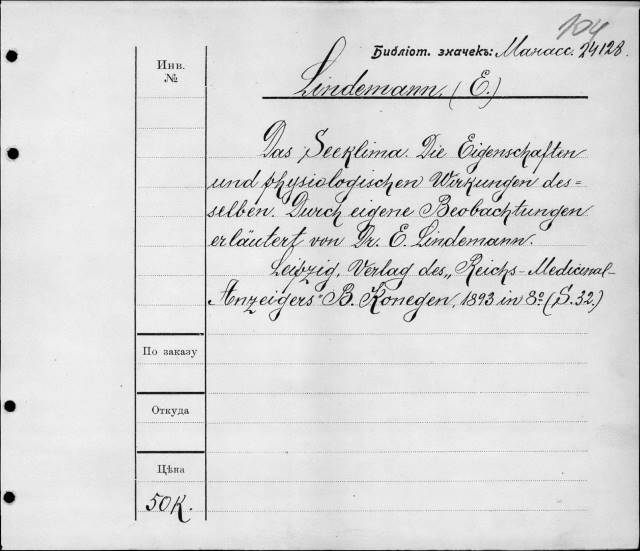 104
Библіот. значекъ: Манасс. 24128.
Инв. №
Lindemann. (E.)
Das Seeklima. Die Eigenschaften
und physiologischen Wirkungen des=
selben. Durch eigene Beobachtungen
erläutert von Dr. E. Lindemann.
Leipzig, Verlag des „Reichs-Medicinal-
Anzeigers" B. Konegen, 1893 in 8º (S. 32.)
По заказу
Откуда
Цѣна
50к.